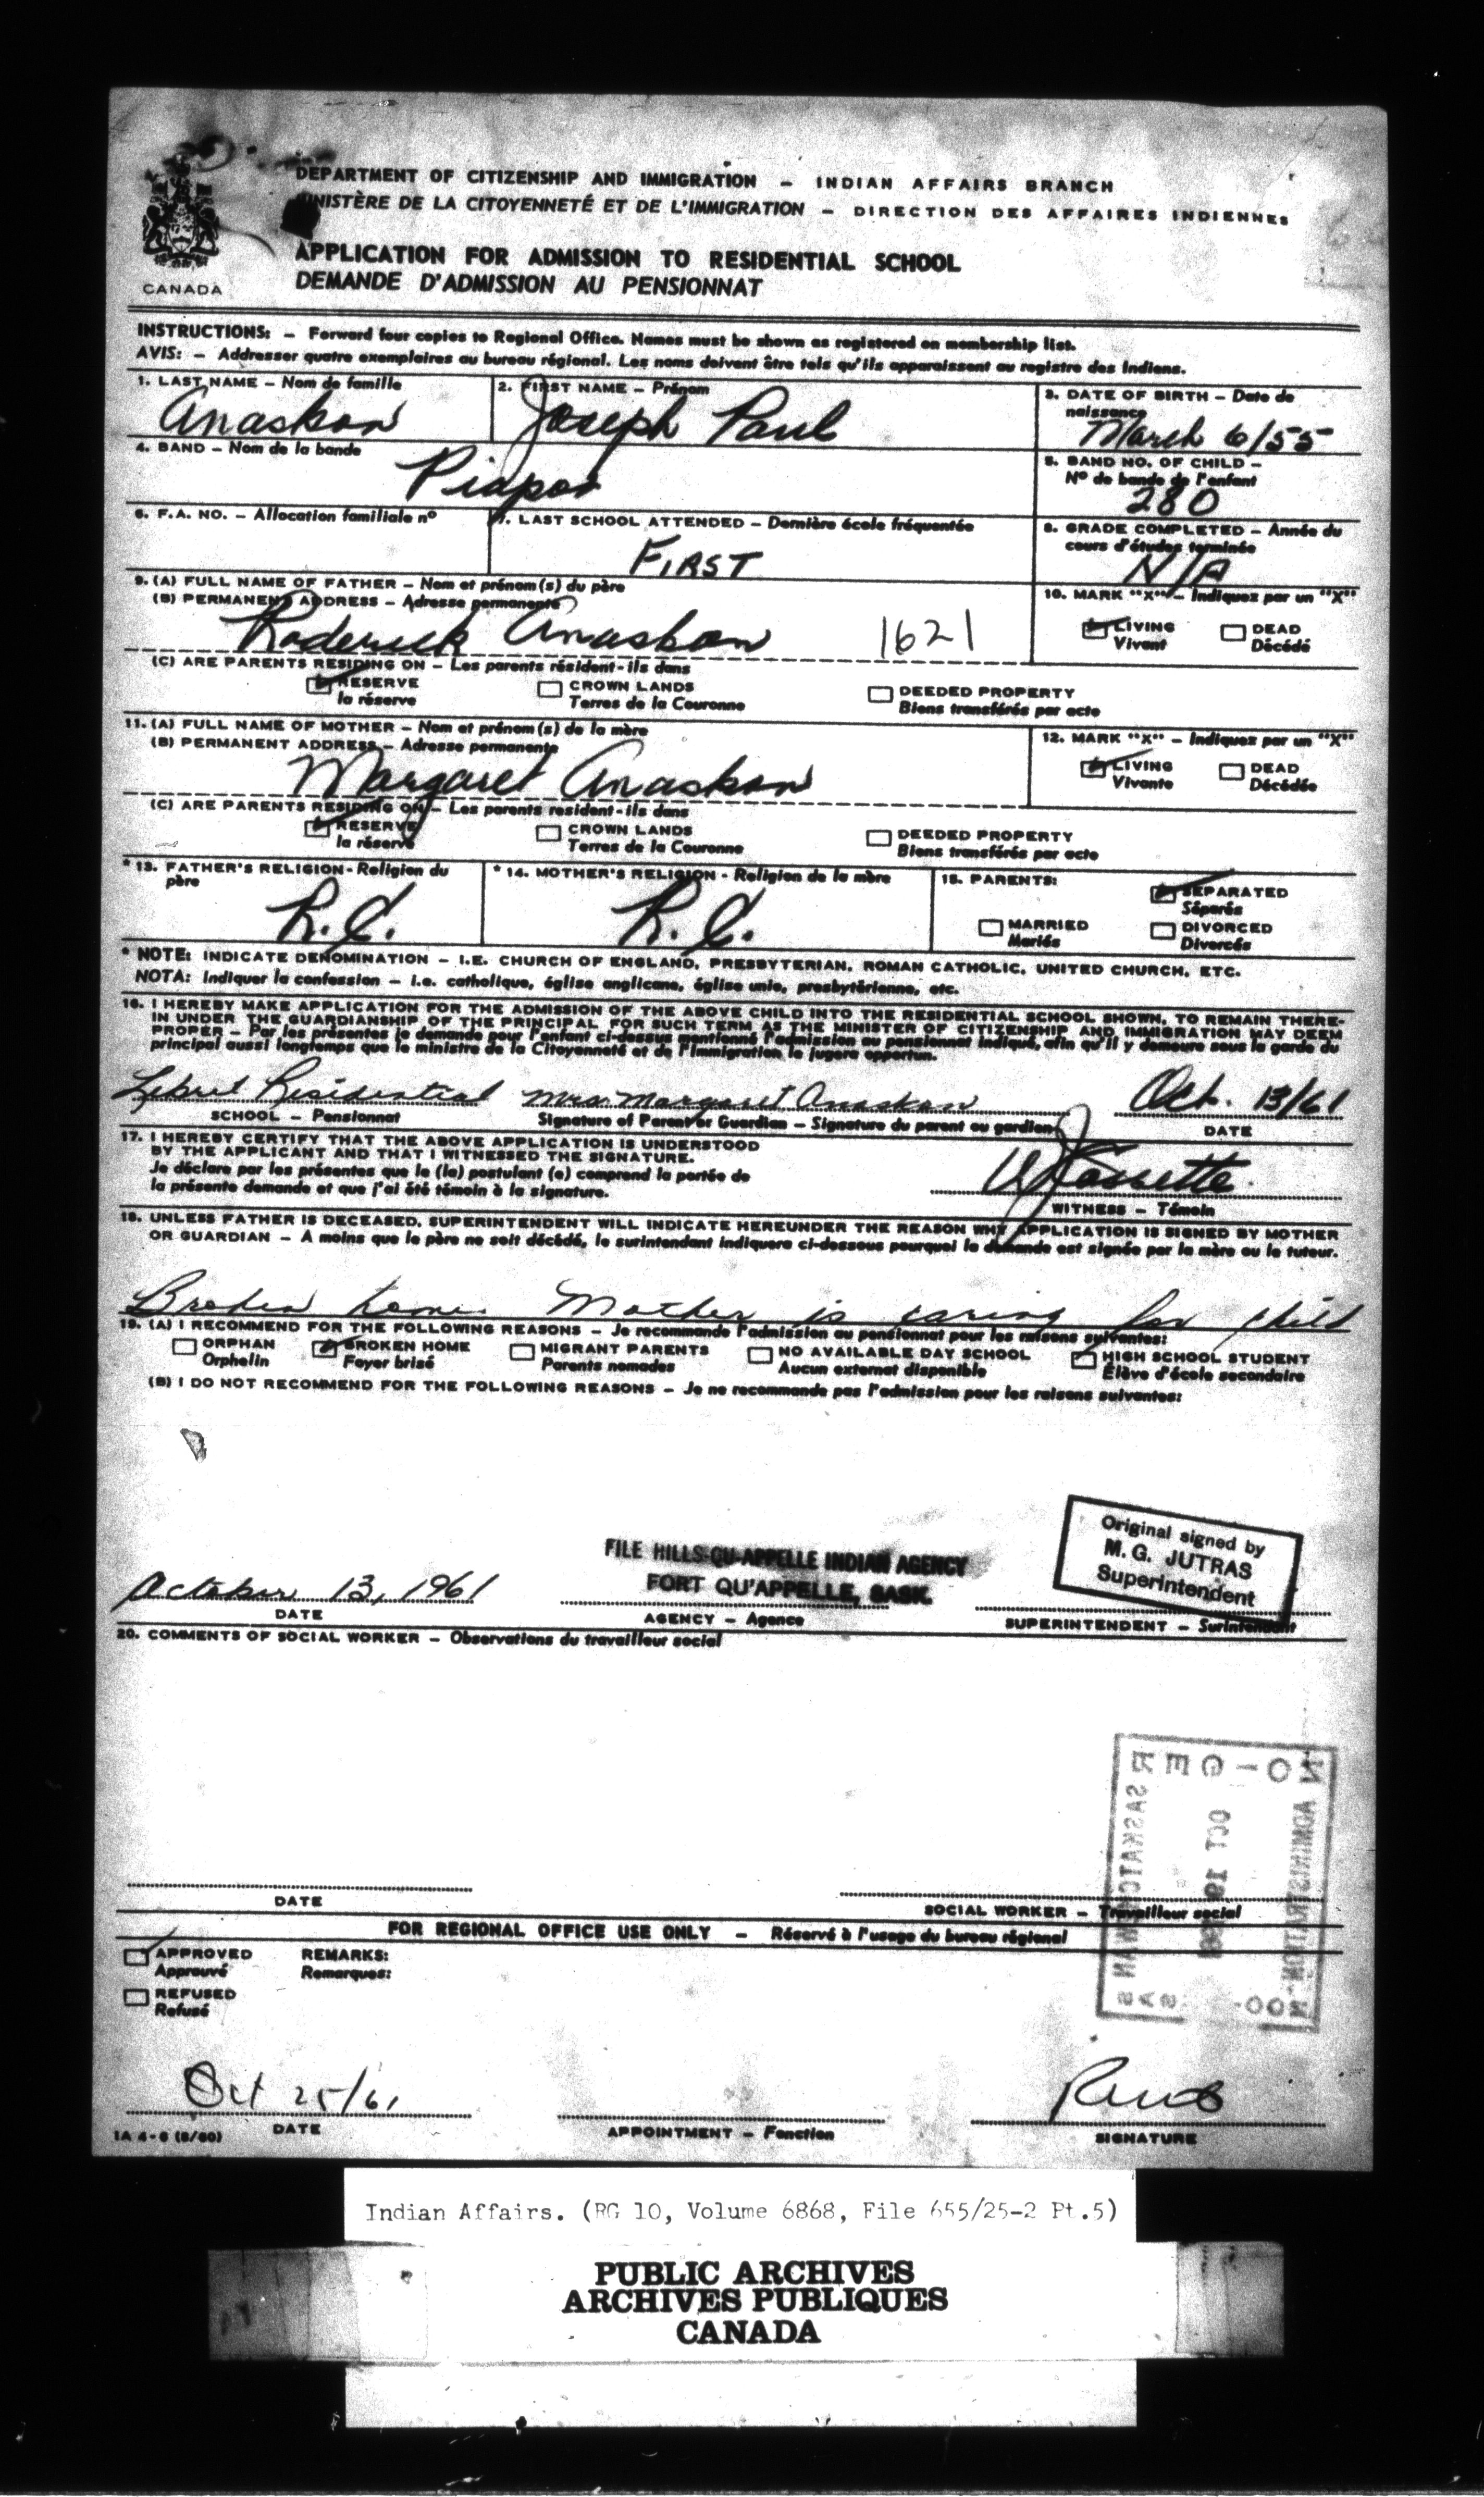 DEPARTMENT OF CITIZENSHIP AND IMMIGRATION – INDIAN AFFAIRS BRANCH
MINISTÈRE DE LA CITOYENNETÉ ET DE L'IMMIGRATION – DIRECTION DES AFFAIRES INDIENNES
APPLICATION FOR ADMISSION TO RESIDENTIAL SCHOOL
DEMANDE D'ADMISSION AU PENSIONNAT
CANADA
INSTRUCTIONS: – Forward four copies to Regional Office. Names must be shown as registered on membership list.
AVIS: – Addresser quatre exemplaires au bureau régional. Les noms doivent être tels qu'ils apparaissent au registre des Indiens.
1. LAST NAME – Nom de famille
Anaskan
2. FIRST NAME – Prénom
Joseph Paul
3. DATE OF BIRTH – Date de naissance
March 6/55
4. BAND – Nom de la bande
Piapot
5. BAND NO. OF CHILD –
Nº de bande de l'enfant
280
6. F.A. NO. – Allocation familiale nº
7. LAST SCHOOL ATTENDED – Dernière école fréquentée
FIRST
8. GRADE COMPLETED – Année du
cours d'études terminée
N/A
9. (A) FULL NAME OF FATHER – Nom et prénom(s) du père
(B) PERMANENT ADDRESS – Adresse permanente
Roderick Anaskan 1621
10. MARK "X" – Indiquez par un "X"
LIVING DEAD
Vivant Décédé
(C) ARE PARENTS RESIDING ON – Les parents résident-ils dans
RESERVE CROWN LANDS DEEDED PROPERTY
la réserve Terres de la Couronne Biens transférés par acte
11. (A) FULL NAME OF MOTHER – Nom et prénom(s) de la mère
(B) PERMANENT ADDRESS – Adresse permanente
Margaret Anaskan
12. MARK "X" – Indiquez par un "X"
LIVING DEAD
Vivante Décédée
(C) ARE PARENTS RESIDING ON – Les parents resident-ils dans
RESERVE CROWN LANDS DEEDED PROPERTY
la réserve Terres de la Couronne Biens transférés par acte
* 13. FATHER'S RELIGION - Religion du père
R.C.
* 14. MOTHER'S RELIGION - Religion de la mère
R.C.
15. PARENTS:
SEPARATED
Séparés
MARRIED DIVORCED
Mariés Divorcés
* NOTE: INDICATE DENOMINATION – I.E. CHURCH OF ENGLAND, PRESBYTERIAN, ROMAN CATHOLIC, UNITED CHURCH, ETC.
NOTA: Indiquer la confession – i.e. catholique, église anglicane, église unie, presbytérienne, etc.
16. I HEREBY MAKE APPLICATION FOR THE ADMISSION OF THE ABOVE CHILD INTO THE RESIDENTIAL SCHOOL SHOWN, TO REMAIN THERE-
IN UNDER THE GUARDIANSHIP OF THE PRINCIPAL FOR SUCH TERM AS THE MINISTER OF CITIZENSHIP AND IMMIGRATION MAY DEEM
PROPER – Par les présentes je demande pour l'enfant ci-dessus mentionné l'admission au pensionnat indiqué, afin qu'il y demeure sous la garde du
principal aussi longtemps que le ministre de la Citoyenneté et de l'Immigration le jugera opportun.
Lebret Residential Mrs. Margaret Anaskan Oct. 13/61
SCHOOL – Pensionnat Signature of Parent or Guardian – Signature du parent ou gardien DATE
17. I HEREBY CERTIFY THAT THE ABOVE APPLICATION IS UNDERSTOOD
BY THE APPLICANT AND THAT I WITNESSED THE SIGNATURE.
Je déclare par les présentes que le (la) postulant (e) comprend la portée de
la présente demande et que j'ai été témoin à la signature.
WITNESS – Témoin
18. UNLESS FATHER IS DECEASED, SUPERINTENDENT WILL INDICATE HEREUNDER THE REASON WHY APPLICATION IS SIGNED BY MOTHER
OR GUARDIAN – A moins que le père ne soit décédé, le surintendant indiquera ci-dessous pourquoi la demande est signée par la mère ou le tuteur.
Broken home. Mother is caring for child
19. (A) I RECOMMEND FOR THE FOLLOWING REASONS – Je recommande l'admission au pensionnat pour les raisons suivantes:
ORPHAN BROKEN HOME MIGRANT PARENTS NO AVAILABLE DAY SCHOOL HIGH SCHOOL STUDENT
Orphelin Foyer brisé Parents nomades Aucun externat disponible Élève d'école secondaire
(B) I DO NOT RECOMMEND FOR THE FOLLOWING REASONS – Je ne recommande pas l'admission pour les raisons suivantes:
Original signed by
M. G. JUTRAS
Superintendent
FILE HILLS-QU-APPELLE INDIAN AGENCY
FORT QU'APPELLE, SASK.
October 13, 1961
DATE AGENCY – Agence SUPERINTENDENT – Surintendant
20. COMMENTS OF SOCIAL WORKER – Observations du travailleur social
DATE SOCIAL WORKER – Travailleur social
FOR REGIONAL OFFICE USE ONLY – Réservé à l'usage du bureau régional
APPROVED REMARKS:
Approuvé Remarques:
REFUSED
Refusé
Oct 25/61
DATE APPOINTMENT – Fonction SIGNATURE
IA 4-6 (8/60)
Indian Affairs. (RG 10, Volume 6868, File 655/25-2 Pt.5)
PUBLIC ARCHIVES
ARCHIVES PUBLIQUES
CANADA